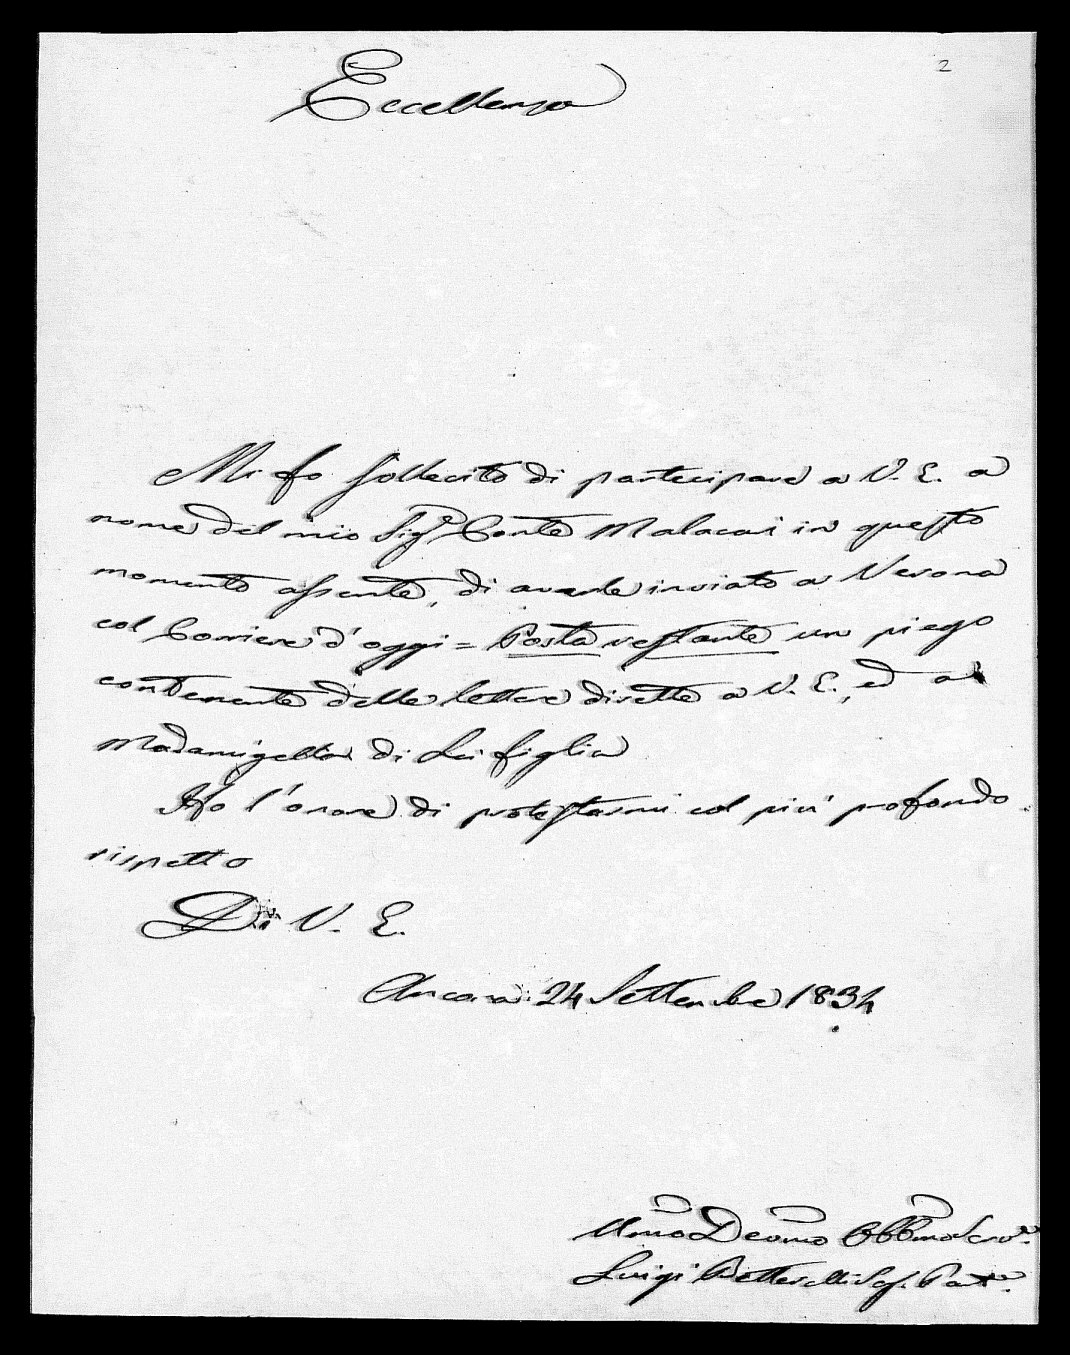 2
Eccellenza
Mi fo sollecito di partecipare a V. E. a
nome del mio Sigr Conte Malacari in questo
momento assente, di averle inviato a Verona
col Corriere d'oggi = Posta restante un piego
contenente delle lettere dirette a V. E., ed a
Madamigella di Lei figlia
Ho l'onore di protestarmi col più profondo
rispetto
Di V. E.
Ancona 24 Settembre 1834
Umo Devmo Obbmo Servre
Luigi